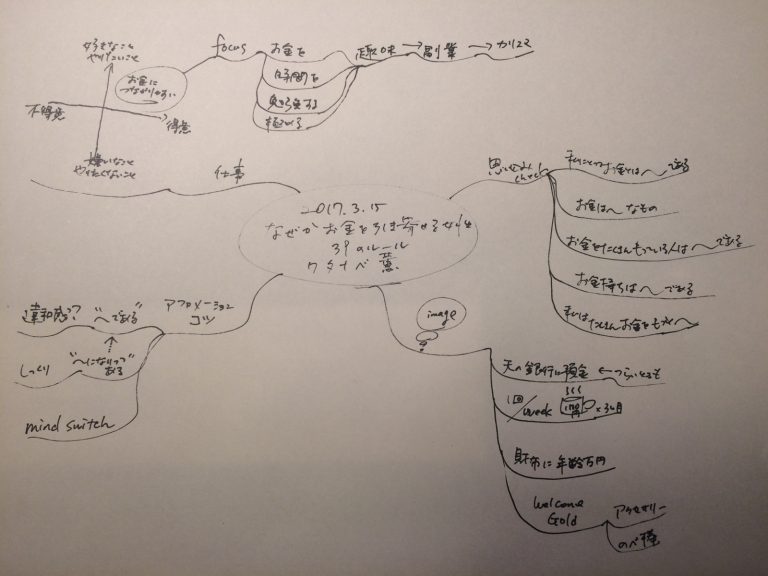 2017.3.15
なぜかお金を引き寄せる女性
39のルール
ワタナベ薫
仕事
好きなこと
やりたいこと
お金に
つながりやすい
不得意
得意
嫌いなこと
やりたくないこと
focus
お金を
時間を
勉強する
極める
趣味→副業→カリスマ
思い込み
check
私にとってお金とは〜である
お金は〜なもの
お金をたくさんもっている人は〜である
お金持ちは〜である
私はたくさんお金をもつと〜
image
天の銀行に預金 ←つらいときも
1回/week
×3ヶ月
財布に年齢万円
Welcome
Gold
アクセサリー
のべ棒
アファメーション
コツ
違和感? "〜である"
しっくり "〜になりつつ
ある"
mind switch